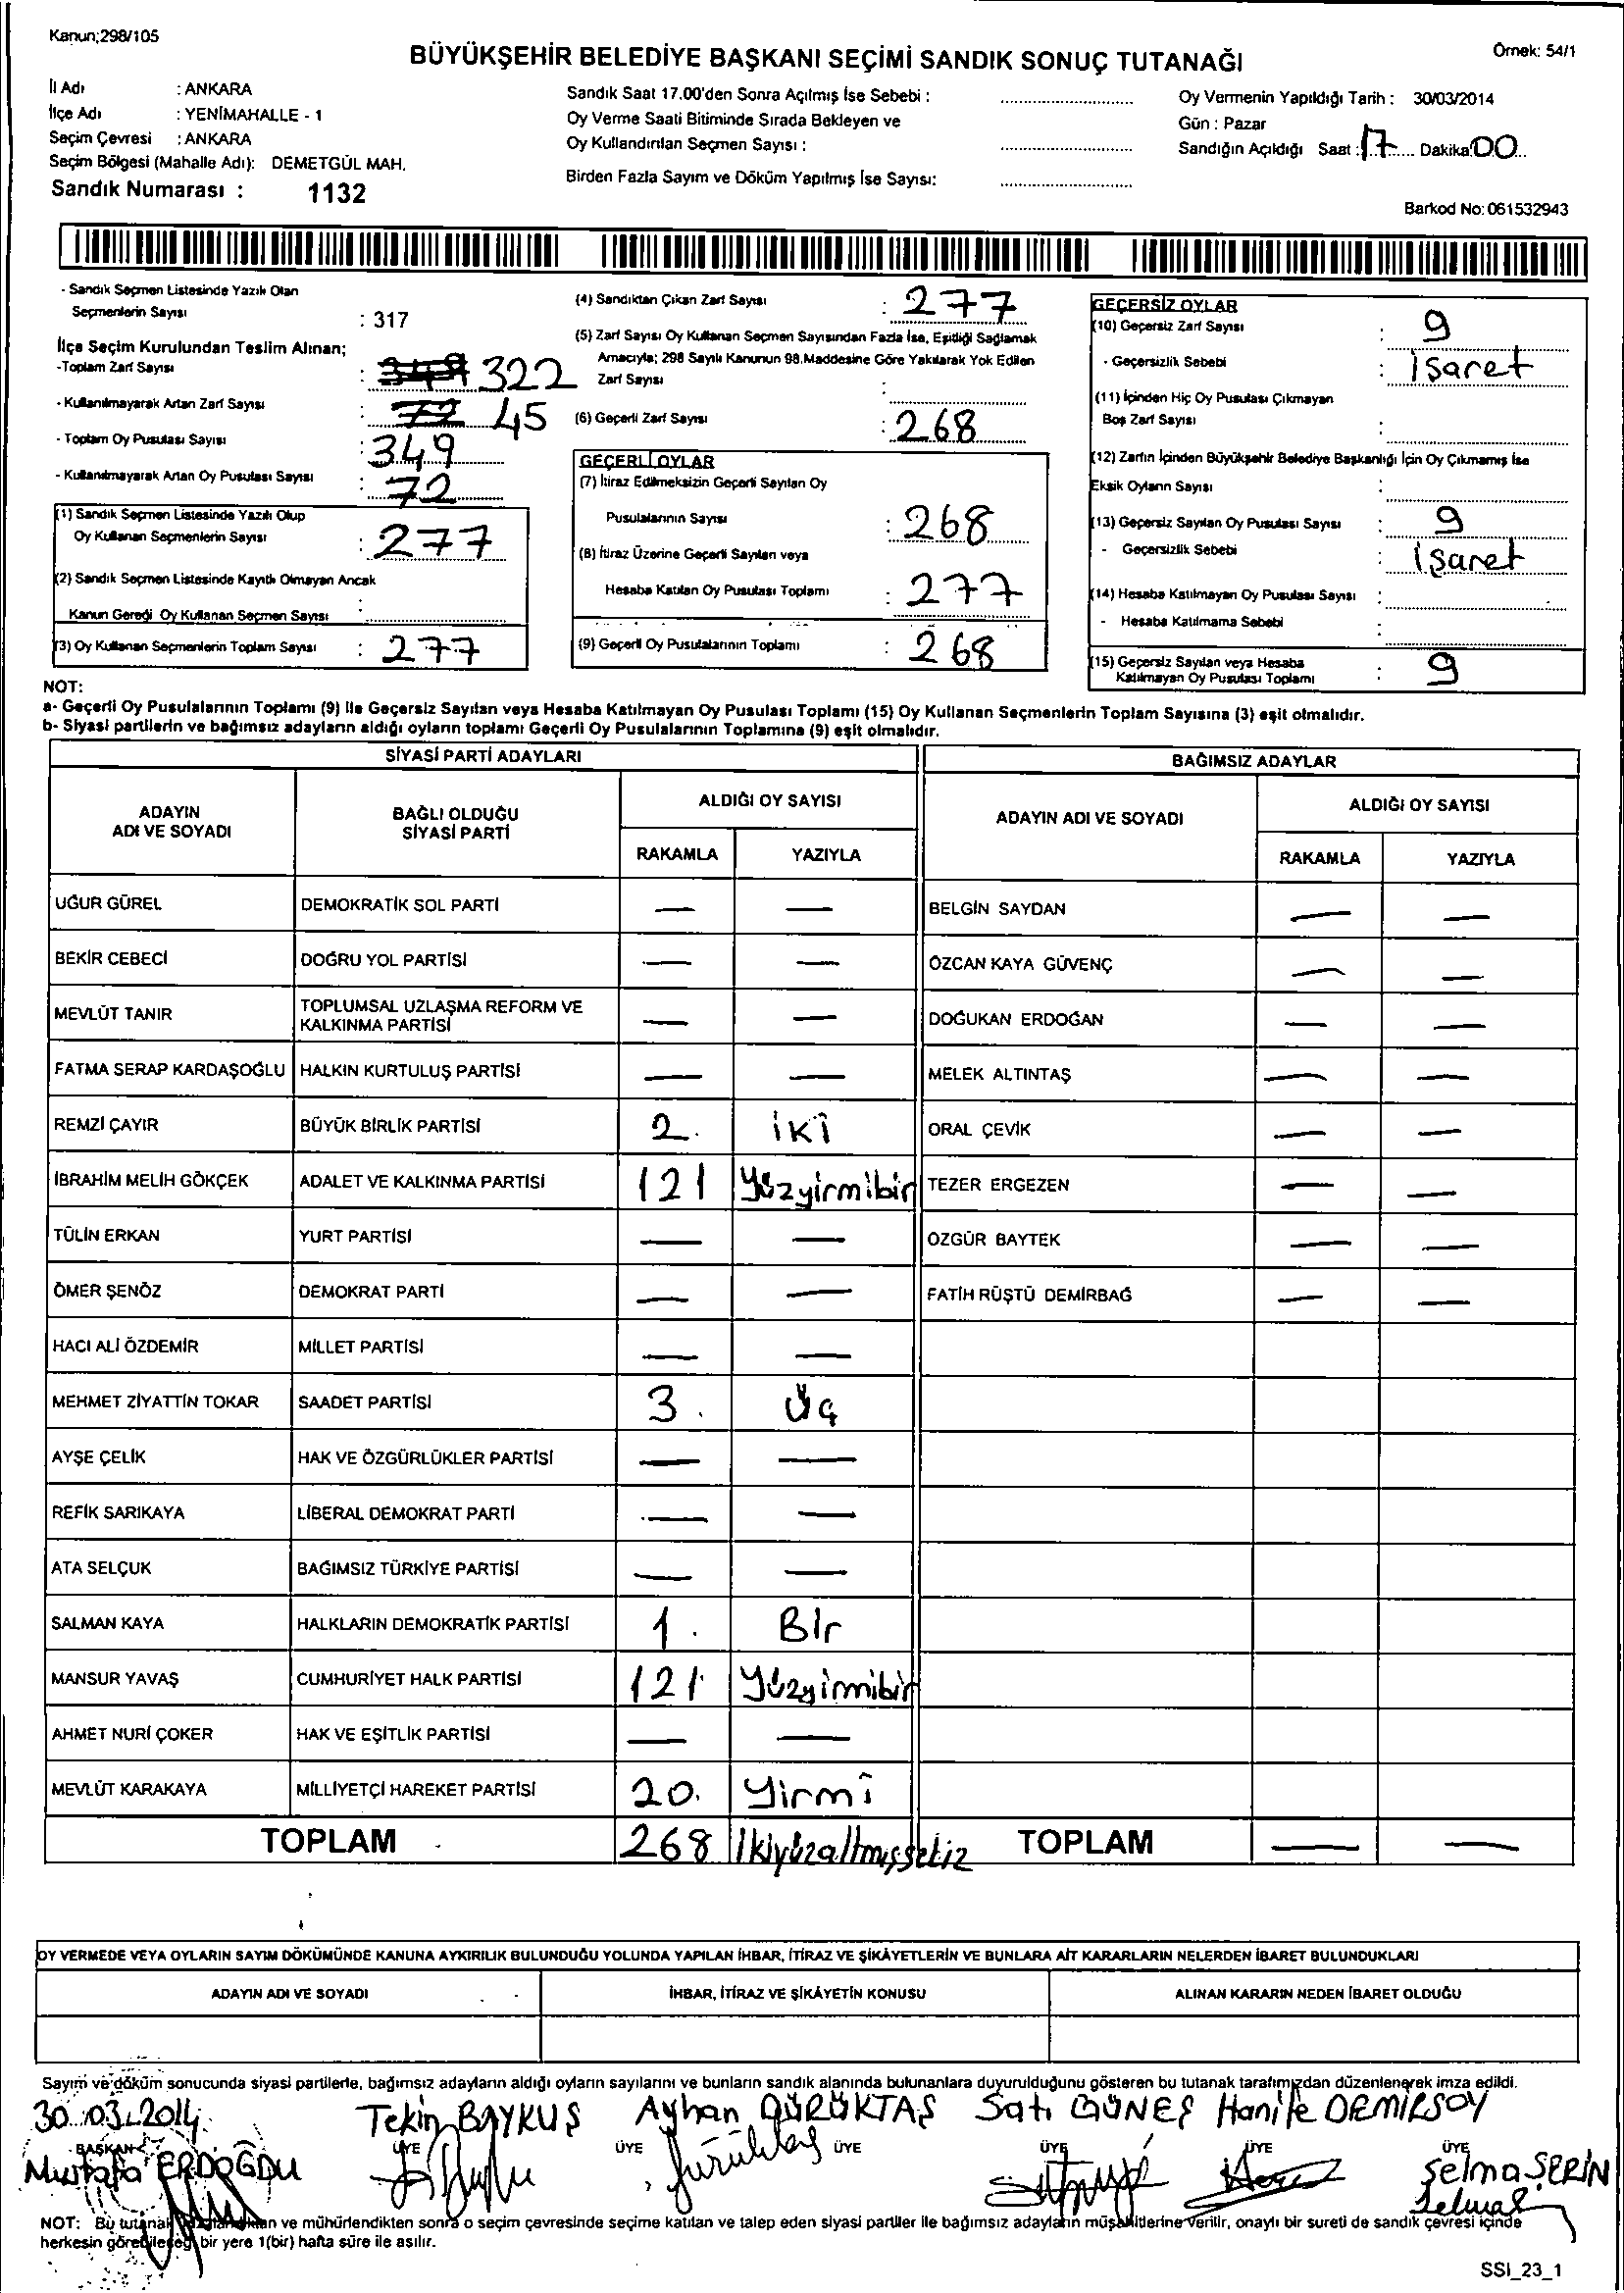 Kanun;298/105
BÜYÜKŞEHİR BELEDİYE BAŞKANI SEÇİMİ SANDIK SONUÇ TUTANAĞI
Örnek: 54/1
İl Adı : ANKARA
İlçe Adı : YENİMAHALLE - 1
Seçim Çevresi : ANKARA
Seçim Bölgesi (Mahalle Adı): DEMETGÜL MAH.
Sandık Numarası : 1132
Sandık Saat 17.00'den Sonra Açılmış İse Sebebi :
Oy Verme Saati Bitiminde Sırada Bekleyen ve
Oy Kullandırılan Seçmen Sayısı :
Birden Fazla Sayım ve Döküm Yapılmış İse Sayısı:
Oy Vermenin Yapıldığı Tarih : 30/03/2014
Gün : Pazar
Sandığın Açıldığı Saat : 17 Dakika 00
Barkod No: 061532943
- Sandık Seçmen Listesinde Yazılı Olan
Seçmenlerin Sayısı : 317
İlçe Seçim Kurulundan Teslim Alınan;
-Toplam Zarf Sayısı : 349 322
- Kullanılmayarak Artan Zarf Sayısı : 72 45
- Toplam Oy Pusulası Sayısı : 349
- Kullanılmayarak Artan Oy Pusulası Sayısı : 72
(1) Sandık Seçmen Listesinde Yazılı Olup
Oy Kullanan Seçmenlerin Sayısı : 277
(2) Sandık Seçmen Listesinde Kayıtlı Olmayan Ancak
Kanun Gereği Oy Kullanan Seçmen Sayısı :
(3) Oy Kullanan Seçmenlerin Toplam Sayısı : 277
(4) Sandıktan Çıkan Zarf Sayısı : 277
(5) Zarf Sayısı Oy Kullanan Seçmen Sayısından Fazla İse, Eşitliği Sağlamak
Amacıyla; 298 Sayılı Kanunun 98.Maddesine Göre Yakılarak Yok Edilen
Zarf Sayısı :
(6) Geçerli Zarf Sayısı : 268
GEÇERLİ OYLAR
(7) İtiraz Edilmeksizin Geçerli Sayılan Oy
Pusulalarının Sayısı : 268
(8) İtiraz Üzerine Geçerli Sayılan veya
Hesaba Katılan Oy Pusulası Toplamı : 277
(9) Geçerli Oy Pusulalarının Toplamı : 268
GEÇERSİZ OYLAR
(10) Geçersiz Zarf Sayısı : 9
- Geçersizlik Sebebi : işaret
(11) İçinden Hiç Oy Pusulası Çıkmayan
Boş Zarf Sayısı :
(12) Zarfın İçinden Büyükşehir Belediye Başkanlığı İçin Oy Çıkmamış İse
Eksik Oyların Sayısı :
(13) Geçersiz Sayılan Oy Pusulası Sayısı : 9
- Geçersizlik Sebebi : işaret
(14) Hesaba Katılmayan Oy Pusulası Sayısı :
- Hesaba Katılmama Sebebi :
(15) Geçersiz Sayılan veya Hesaba
Katılmayan Oy Pusulası Toplamı : 9
NOT:
a- Geçerli Oy Pusulalarının Toplamı (9) ile Geçersiz Sayılan veya Hesaba Katılmayan Oy Pusulası Toplamı (15) Oy Kullanan Seçmenlerin Toplam Sayısına (3) eşit olmalıdır.
b- Siyasi partilerin ve bağımsız adayların aldığı oyların toplamı Geçerli Oy Pusulalarının Toplamına (9) eşit olmalıdır.
SİYASİ PARTİ ADAYLARI
ADAYIN ADI VE SOYADI
BAĞLI OLDUĞU SİYASİ PARTİ
ALDIĞI OY SAYISI
RAKAMLA YAZIYLA
BAĞIMSIZ ADAYLAR
ADAYIN ADI VE SOYADI
ALDIĞI OY SAYISI
RAKAMLA YAZIYLA
UĞUR GÜREL DEMOKRATİK SOL PARTİ — — BELGİN SAYDAN — —
BEKİR CEBECİ DOĞRU YOL PARTİSİ — — ÖZCAN KAYA GÜVENÇ — —
MEVLÜT TANIR TOPLUMSAL UZLAŞMA REFORM VE KALKINMA PARTİSİ — — DOĞUKAN ERDOĞAN — —
FATMA SERAP KARDAŞOĞLU HALKIN KURTULUŞ PARTİSİ — — MELEK ALTINTAŞ — —
REMZİ ÇAYIR BÜYÜK BİRLİK PARTİSİ 2. iki ORAL ÇEVİK — —
İBRAHİM MELİH GÖKÇEK ADALET VE KALKINMA PARTİSİ 121 Yüzyirmibir TEZER ERGEZEN — —
TÜLİN ERKAN YURT PARTİSİ — — ÖZGÜR BAYTEK — —
ÖMER ŞENÖZ DEMOKRAT PARTİ — — FATİH RÜŞTÜ DEMİRBAĞ — —
HACI ALİ ÖZDEMİR MİLLET PARTİSİ — —
MEHMET ZİYATTİN TOKAR SAADET PARTİSİ 3. Üç
AYŞE ÇELİK HAK VE ÖZGÜRLÜKLER PARTİSİ — —
REFİK SARIKAYA LİBERAL DEMOKRAT PARTİ — —
ATA SELÇUK BAĞIMSIZ TÜRKİYE PARTİSİ — —
SALMAN KAYA HALKLARIN DEMOKRATİK PARTİSİ 1. Bir
MANSUR YAVAŞ CUMHURİYET HALK PARTİSİ 121 Yüzyirmibir
AHMET NURİ ÇOKER HAK VE EŞİTLİK PARTİSİ — —
MEVLÜT KARAKAYA MİLLİYETÇİ HAREKET PARTİSİ 20. Yirmi
TOPLAM 268 İkiyüzaltmışsekiz TOPLAM — —
OY VERMEDE VEYA OYLARIN SAYIM DÖKÜMÜNDE KANUNA AYKIRILIK BULUNDUĞU YOLUNDA YAPILAN İHBAR, İTİRAZ VE ŞİKÂYETLERİN VE BUNLARA AİT KARARLARIN NELERDEN İBARET BULUNDUKLARI
ADAYIN ADI VE SOYADI İHBAR, İTİRAZ VE ŞİKÂYETİN KONUSU ALINAN KARARIN NEDEN İBARET OLDUĞU
Sayım ve döküm sonucunda siyasi partilerle, bağımsız adayların aldığı oyların sayılarını ve bunların sandık alanında bulunanlara duyurulduğunu gösteren bu tutanak tarafımızdan düzenlenerek imza edildi.
30.03.2014 Tekin BAYKUŞ Ayhan GÜRÜKTAŞ Satı GÜNEŞ Hanife DEMİRSOY
BAŞKAN ÜYE ÜYE ÜYE ÜYE ÜYE ÜYE
Mustafa ERDOĞDU Selma SERİN
NOT: Bu tutanak ve mühürlendikten sonra o seçim çevresinde seçime katılan ve talep eden siyasi partiler ile bağımsız adayların müşahitlerine verilir, onaylı bir sureti de sandık çevresi içinde
herkesin görebileceği bir yere 1(bir) hafta süre ile asılır.
SSI_23_1